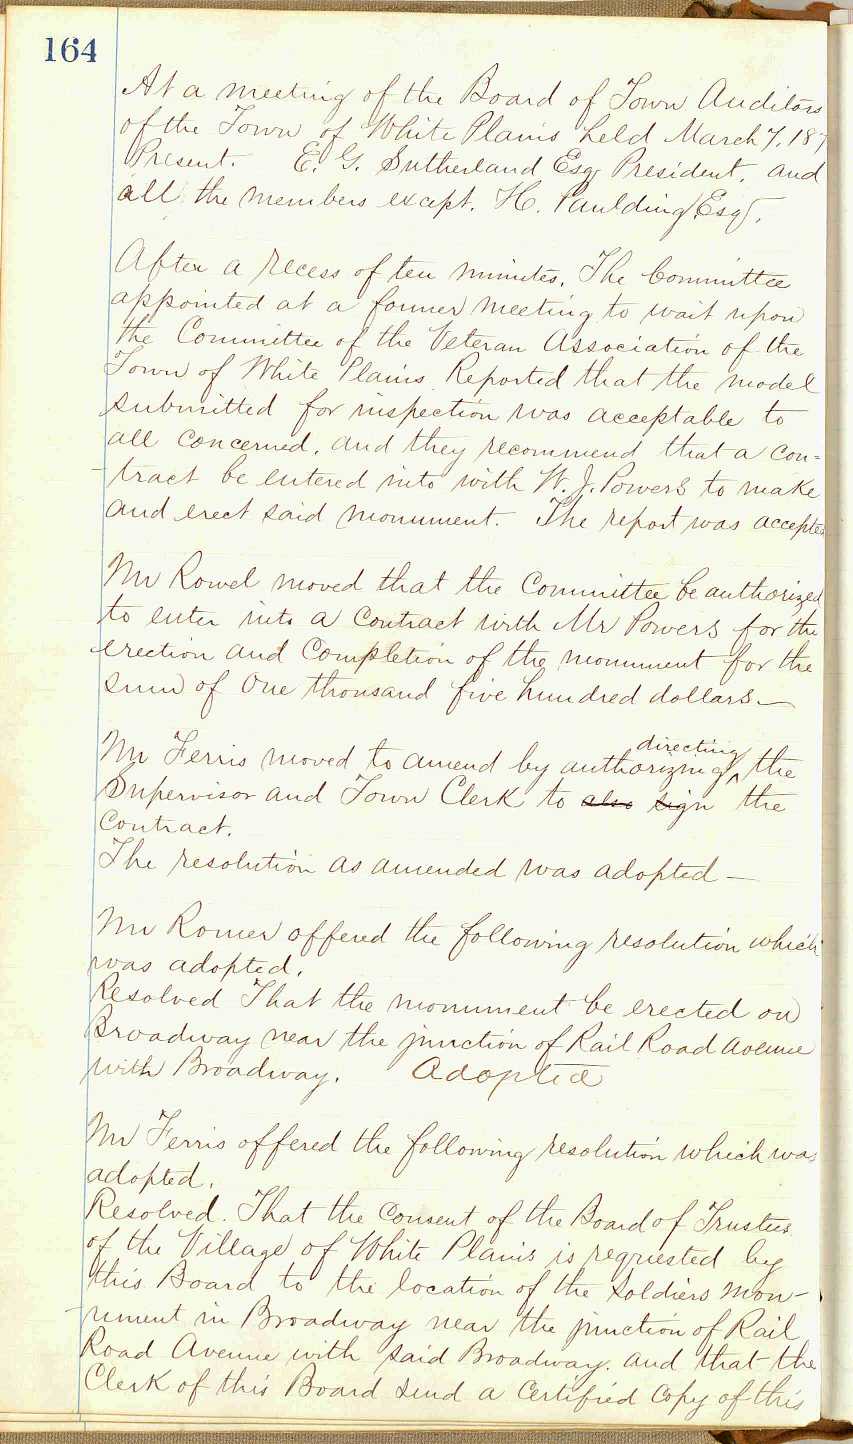 164
At a meeting of the Board of Town Auditors
of the Town of White Plains held March 7, 187
Present. E. G. Sutherland Esq President, and
all the members except. H. Paulding Esq.
After a recess of ten minutes. The Committee
appointed at a former meeting to wait upon
the Committee of the Veteran Association of the
Town of White Plains Reported that the model
submitted for inspection was acceptable to
all concerned, and they recommend that a con=
tract be entered into with W. J. Powers to make
and erect said monument. The report was accepted
Mr Rowel moved that the Committee be authorized
to enter into a Contract with Mr Powers for the
erection and Completion of the monument for the
sum of One thousand five hundred dollars—
directing
Mr Ferris moved to amend by authorizing ^ the
Supervisor and Town Clerk to also sign the
Contract.
The resolution as amended was adopted—
Mr Romer offered the following resolution which
was adopted.
Resolved That the monument be erected on
Broadway near the junction of Rail Road Avenue
with Broadway. Adopted
Mr Ferris offered the following resolution which was
adopted.
Resolved. That the Consent of the Board of Trustees
of the Village of White Plains is requested by
this Board to the location of the Soldiers Mon-
ument in Broadway near the junction of Rail
Road Avenue with said Broadway. and that the
Clerk of this Board send a Certified Copy of this